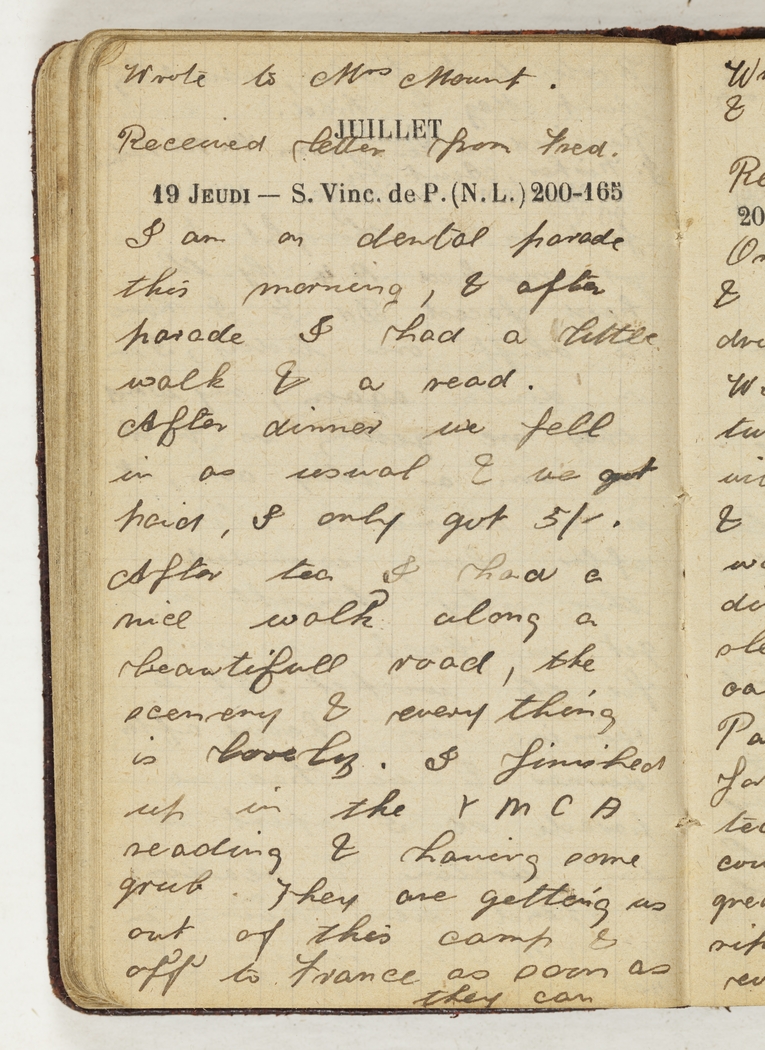 Wrote to Mrs Mount.
JUILLET
Received letter from Fred.
19 JEUDI — S. Vinc. de P. (N. L.) 200-165
I am on dental parade
this morning, & after
parade I had a little
walk & a read.
After dinner we fell
in as usual & we got
paid, I only got 5/-.
After tea I had a
nice walk along a
beautifull road, the
scenery & every thing
is lovely. I finished
up in the Y M C A
reading & having some
grub. They are getting us
out of this camp &
off to France as soon as
they can
Wr
&
Re
20
On
&
dre
We
tw
wi
&
we
du
sle
oa
Pa
for
tea
cou
grea
rif
rev